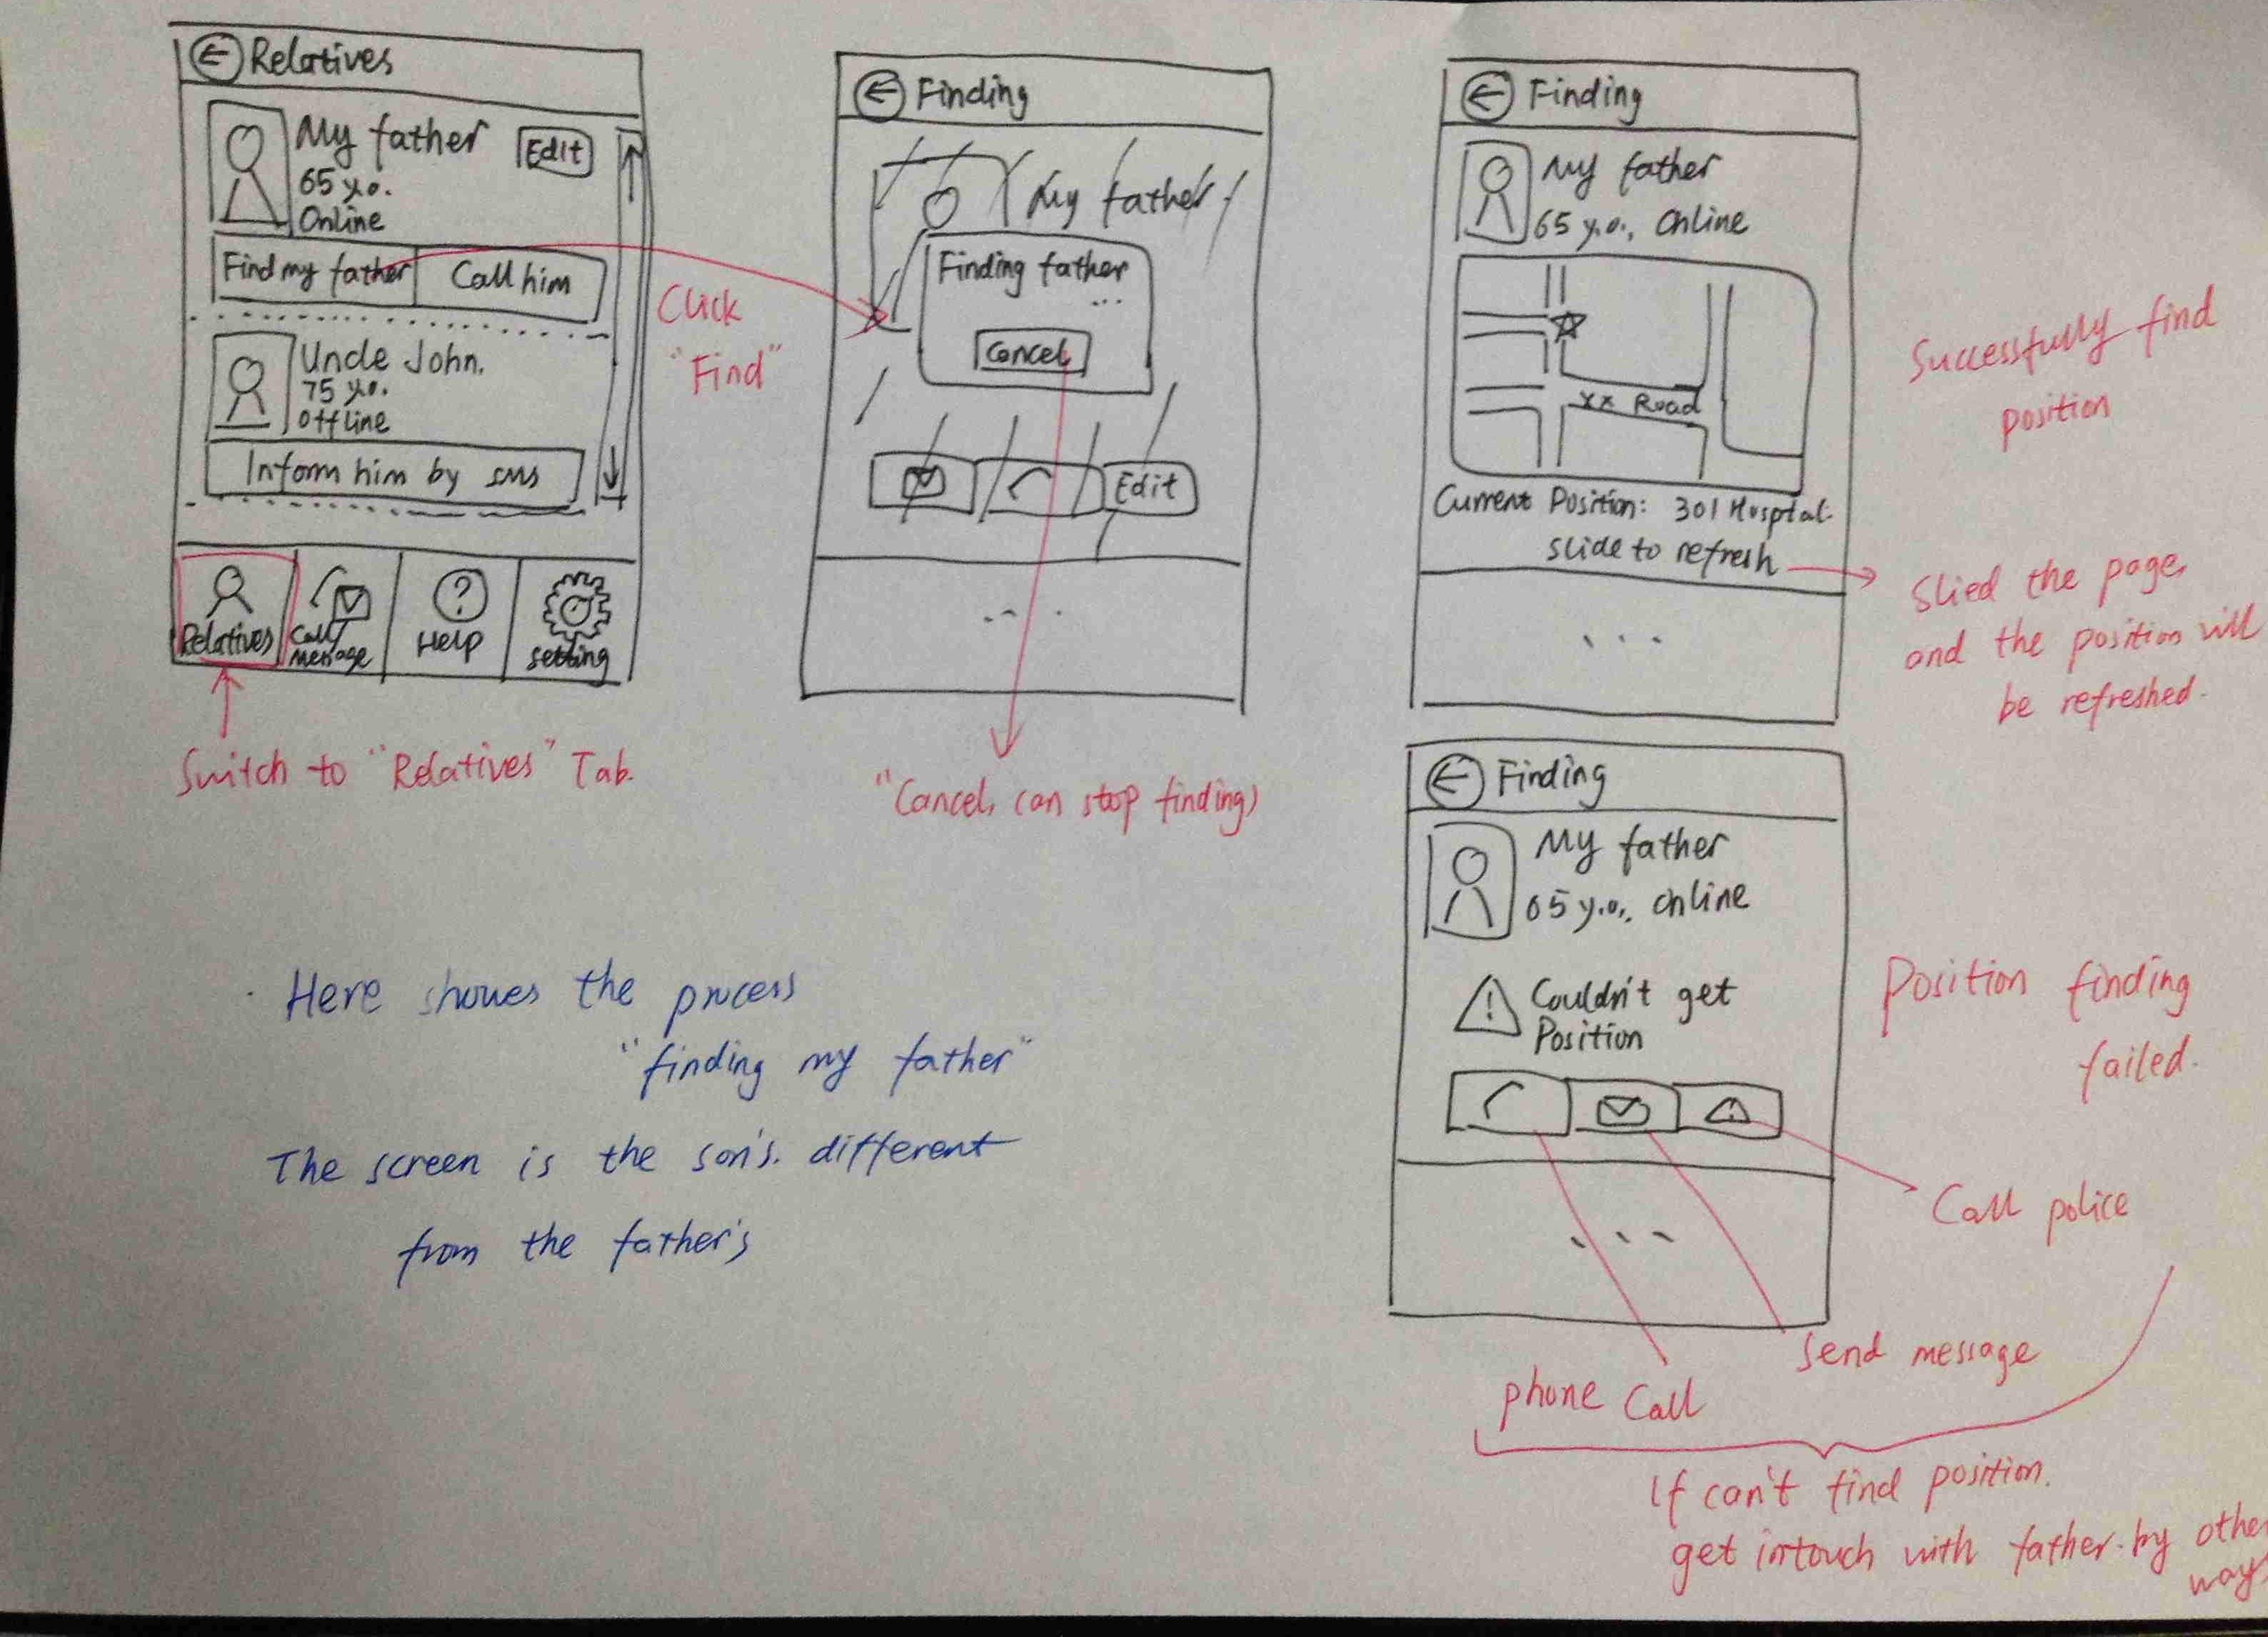 Relatives
My father
Edit
65 y.o.
Online
Find my father
Call him
Uncle John.
75 y.o.
Offline
Inform him by SMS
Relatives
Call/
Message
Help
Setting
Switch to "Relatives" Tab.
Click
"Find"
Finding
My father
Finding father
...
Cancel
Edit
...
"Cancel, can stop finding)
Finding
My father
65 y.o., Online
XX Road
Current Position: 301 Hosptal.
slide to refresh
...
Successfully find
position
Slied the page,
and the position will
be refreshed.
Finding
My father
65 y.o., Online
Couldn't get
Position
...
Position finding
failed.
Call police
Send message
phone Call
If can't find position.
get intouch with father. by other
way
Here showes the process
"finding my father"
The screen is the son's. different
from the father's